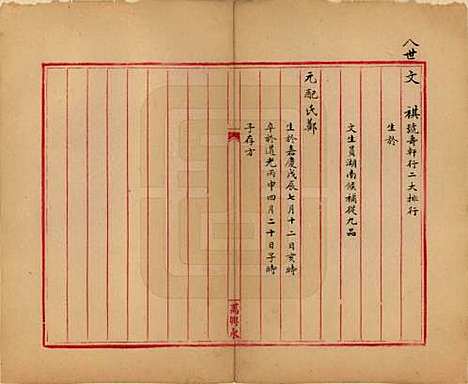 八世文
祺號壽軒行二大排行
生於
文生員湖南候補從九品
元配氏鄭
生於嘉慶戊辰七月十二日亥時
卒於道光丙申四月二十日子時
子存方
萬興永